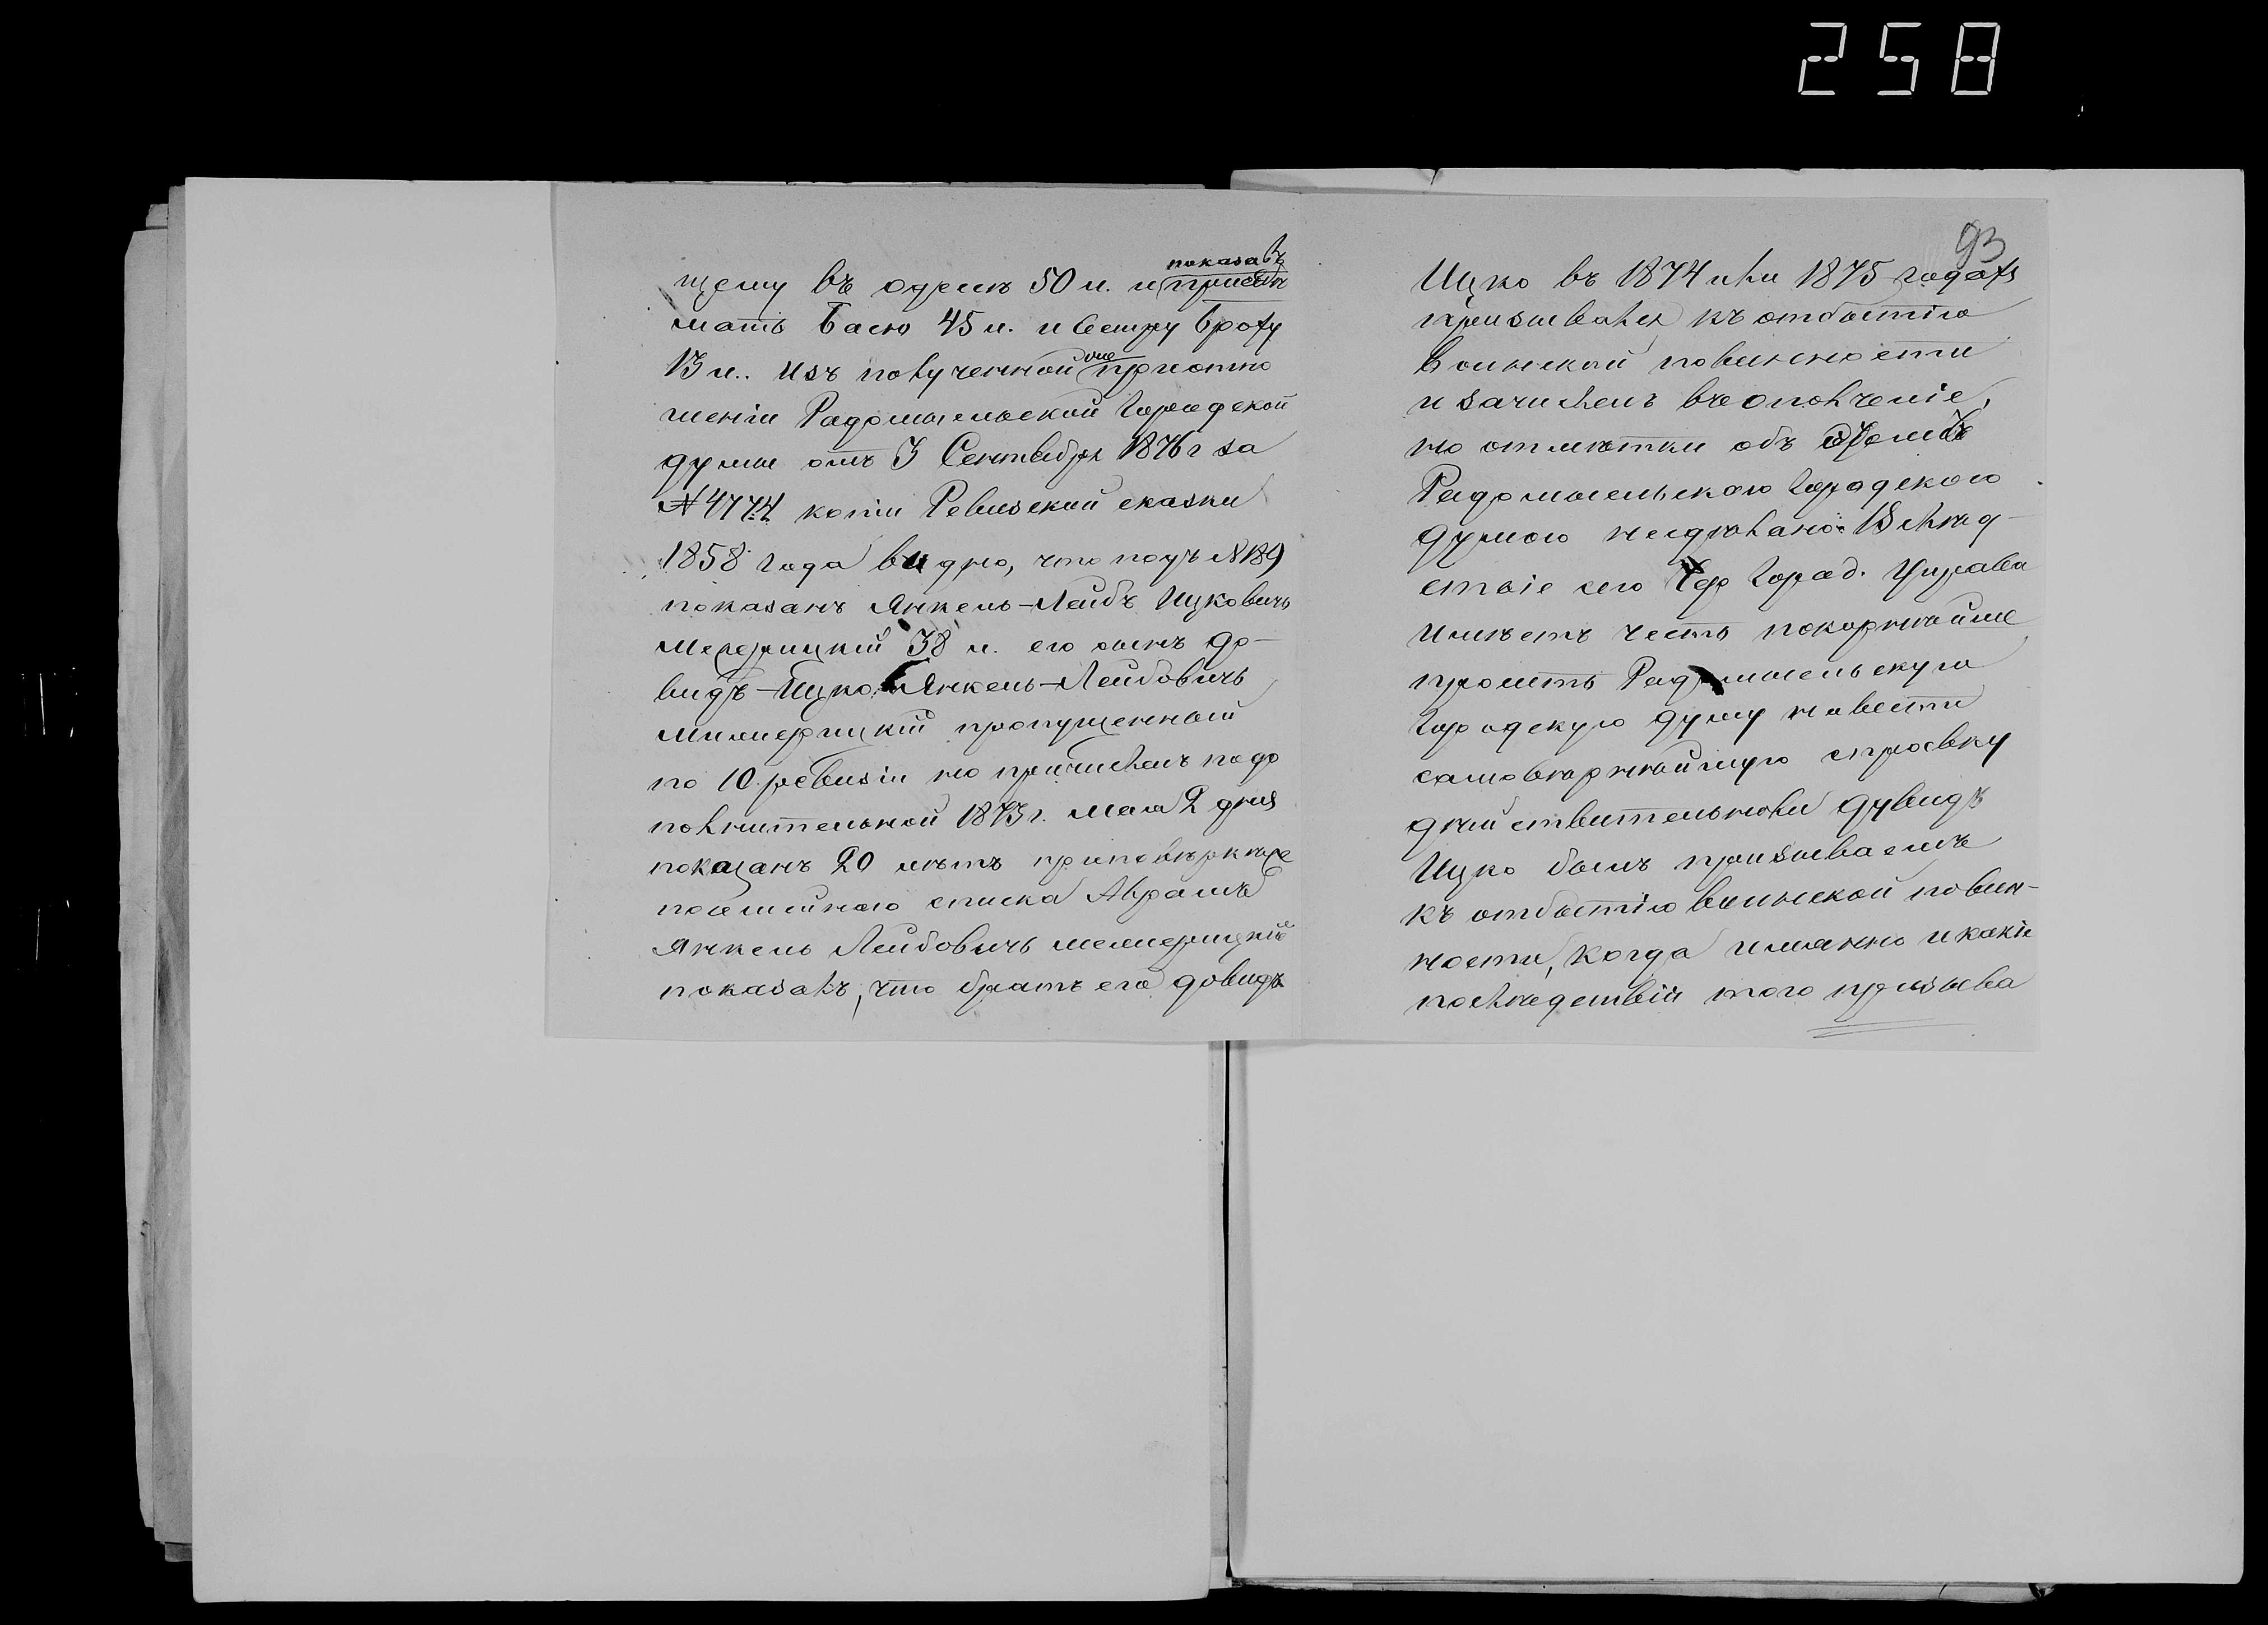 258
93
щему въ одеснъ 50 л. и показавъ
мать Басю 45 л. и сестру Броху
13 л.. Изъ полученной при отно
шеніи Радомысльской Городской
Думы отъ 3 Сентября 1876 г за
№ 4774 копіи Ревизской сказки
1858 года видно, что подъ №189
показанъ Янкель-Лейбъ Ицковичъ
38 л. его сынъ До-
видъ-Ицко Янкель-Лейбовичъ
пропущенный
по 10 ревизіи но причисленъ по до
полнительной 1873 г. мая 2 дня
показанъ 20 лѣтъ при повѣркѣ же
посемейнаго списка Аврамъ
Янкель Лейбовичъ
показалъ, что братъ его Довидъ
Ицко въ 1874 или 1875 годахъ
призывался къ отбытію
воинской повинности
и зачисленъ въ ополченіе,
но отмѣтки объ этомъ
Радомысльскою Городскою
Думою несдѣлано: Вслѣд-
ствіе сего Город. Управа
имѣетъ честь покорнѣйше
просить Радомысльскую
Городскую Думу навести
самовѣрнѣйшую справку
дѣйствительноли Дувидъ
Ицко былъ призываемъ
къ отбытію воинской повин-
ности, когда имянно и какіе
послѣдствіи того призыва